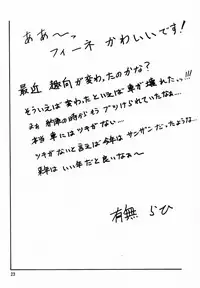 ああ〜っ
フィーネ かわいいです!
最近 趣向が変わったのかな?
そういえば変わったといえば車が壊れたっ…!!!
まぁ 約束の時からイラブツけられていたなぁ…
本当 車にはツキがない…
ツキがないと言えば今年はサンザンだったような…
来年はいい年だと良いなぁ〜
有無らひ
23